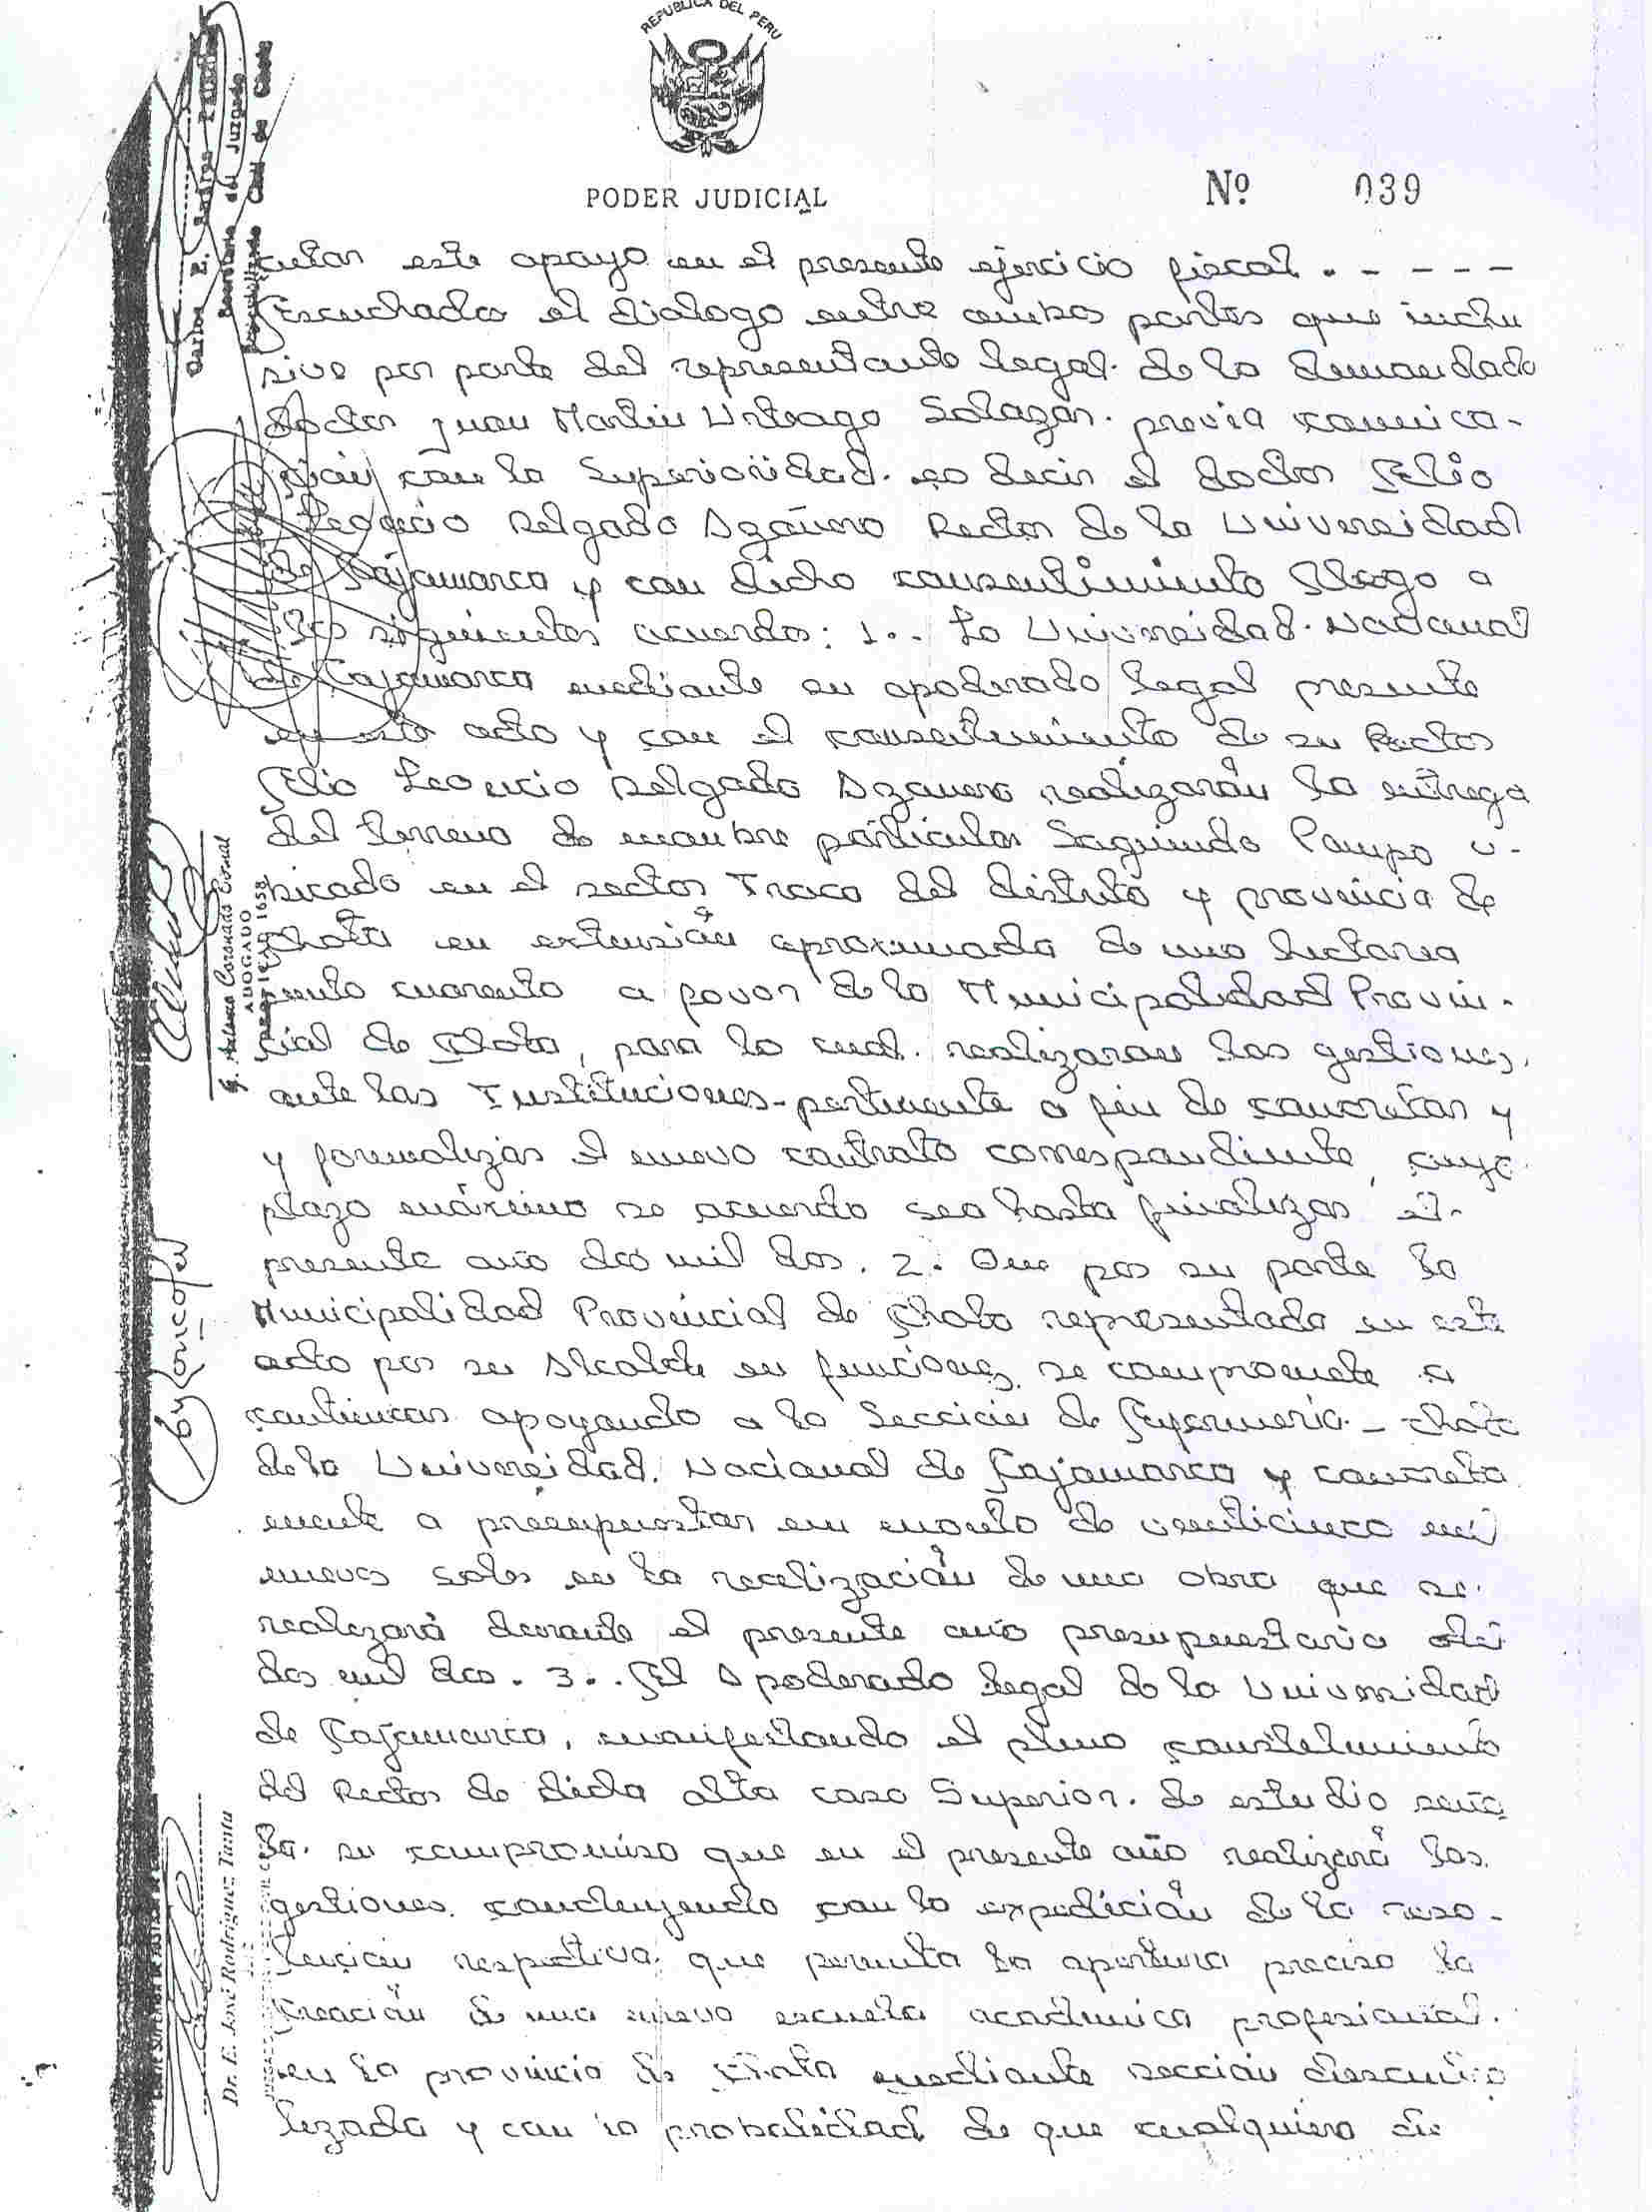 REPUBLICA DEL PERU
PODER JUDICIAL
Nº 039
cutar este apoyo en el presente ejercicio fiscal. - - - -
Escuchado el diálogo entre ambas partes que inclu
sive por parte del representante legal. de la demandada
doctor Juan Martin Urteaga Salazar. previa comunica-
ción con la Superioridad. es decir el doctor Elio
Leoncio Delgado Azañero Rector de la Universidad
de Cajamarca y con dicho consentimiento llego a
los siguientes acuerdos: 1.. La Universidad. Nacional
de Cajamarca mediante su apoderado legal presente
en este acto y con el consentimiento de su Rector
Elio Leoncio Delgado Azañero realizarán la entrega
del terreno de nombre particular Segunda Pampa u-
bicado en el sector Traca del distrito y provincia de
Chota en extensión aproximada de una hectarea
punto cuarenta a favor de la Municipalidad Provin-
cial de Chota, para lo cual. realizaran las gestiones.
ante las Instituciones-pertinente a fin de concretar y
y formalizar el nuevo contrato correspondiente, cuyo
plazo máximo se acuerda sea hasta finalizar el-
presente año dos mil dos. 2. Que por su parte la
Municipalidad Provincial de Chota representada en este
acto por su Alcalde en funciones se compromete a
continuar apoyando a la Sección de Enfermería - Chota
de la Universidad. Nacional de Cajamarca y concreta
mente a presupuestar un monto de veinticinco mil
nuevos soles en la realización de una obra que se
realizará durante el presente año presupuestario del
dos mil dos. 3.. El Apoderado legal de la Universidad
de Cajamarca, manifestando el pleno consentimiento
del Rector de dicha alta casa Superior. de estudio seña
la. su compromiso que en el presente año realizará las
gestiones. concluyendo con la expedición de la reso-
lución respectiva que permita la apertura preciso la
creación de una nueva escuela académica profesional.
en la provincia de Chota mediante sección descentra
lizada y con la probabilidad de que cualquiera de
Carlos E. Andres
Secretario del Juzgado
Especializado Civil de Chota
Antonio Coronado
ABOGADO
1658
Dr. E. José Rodríguez Tanta